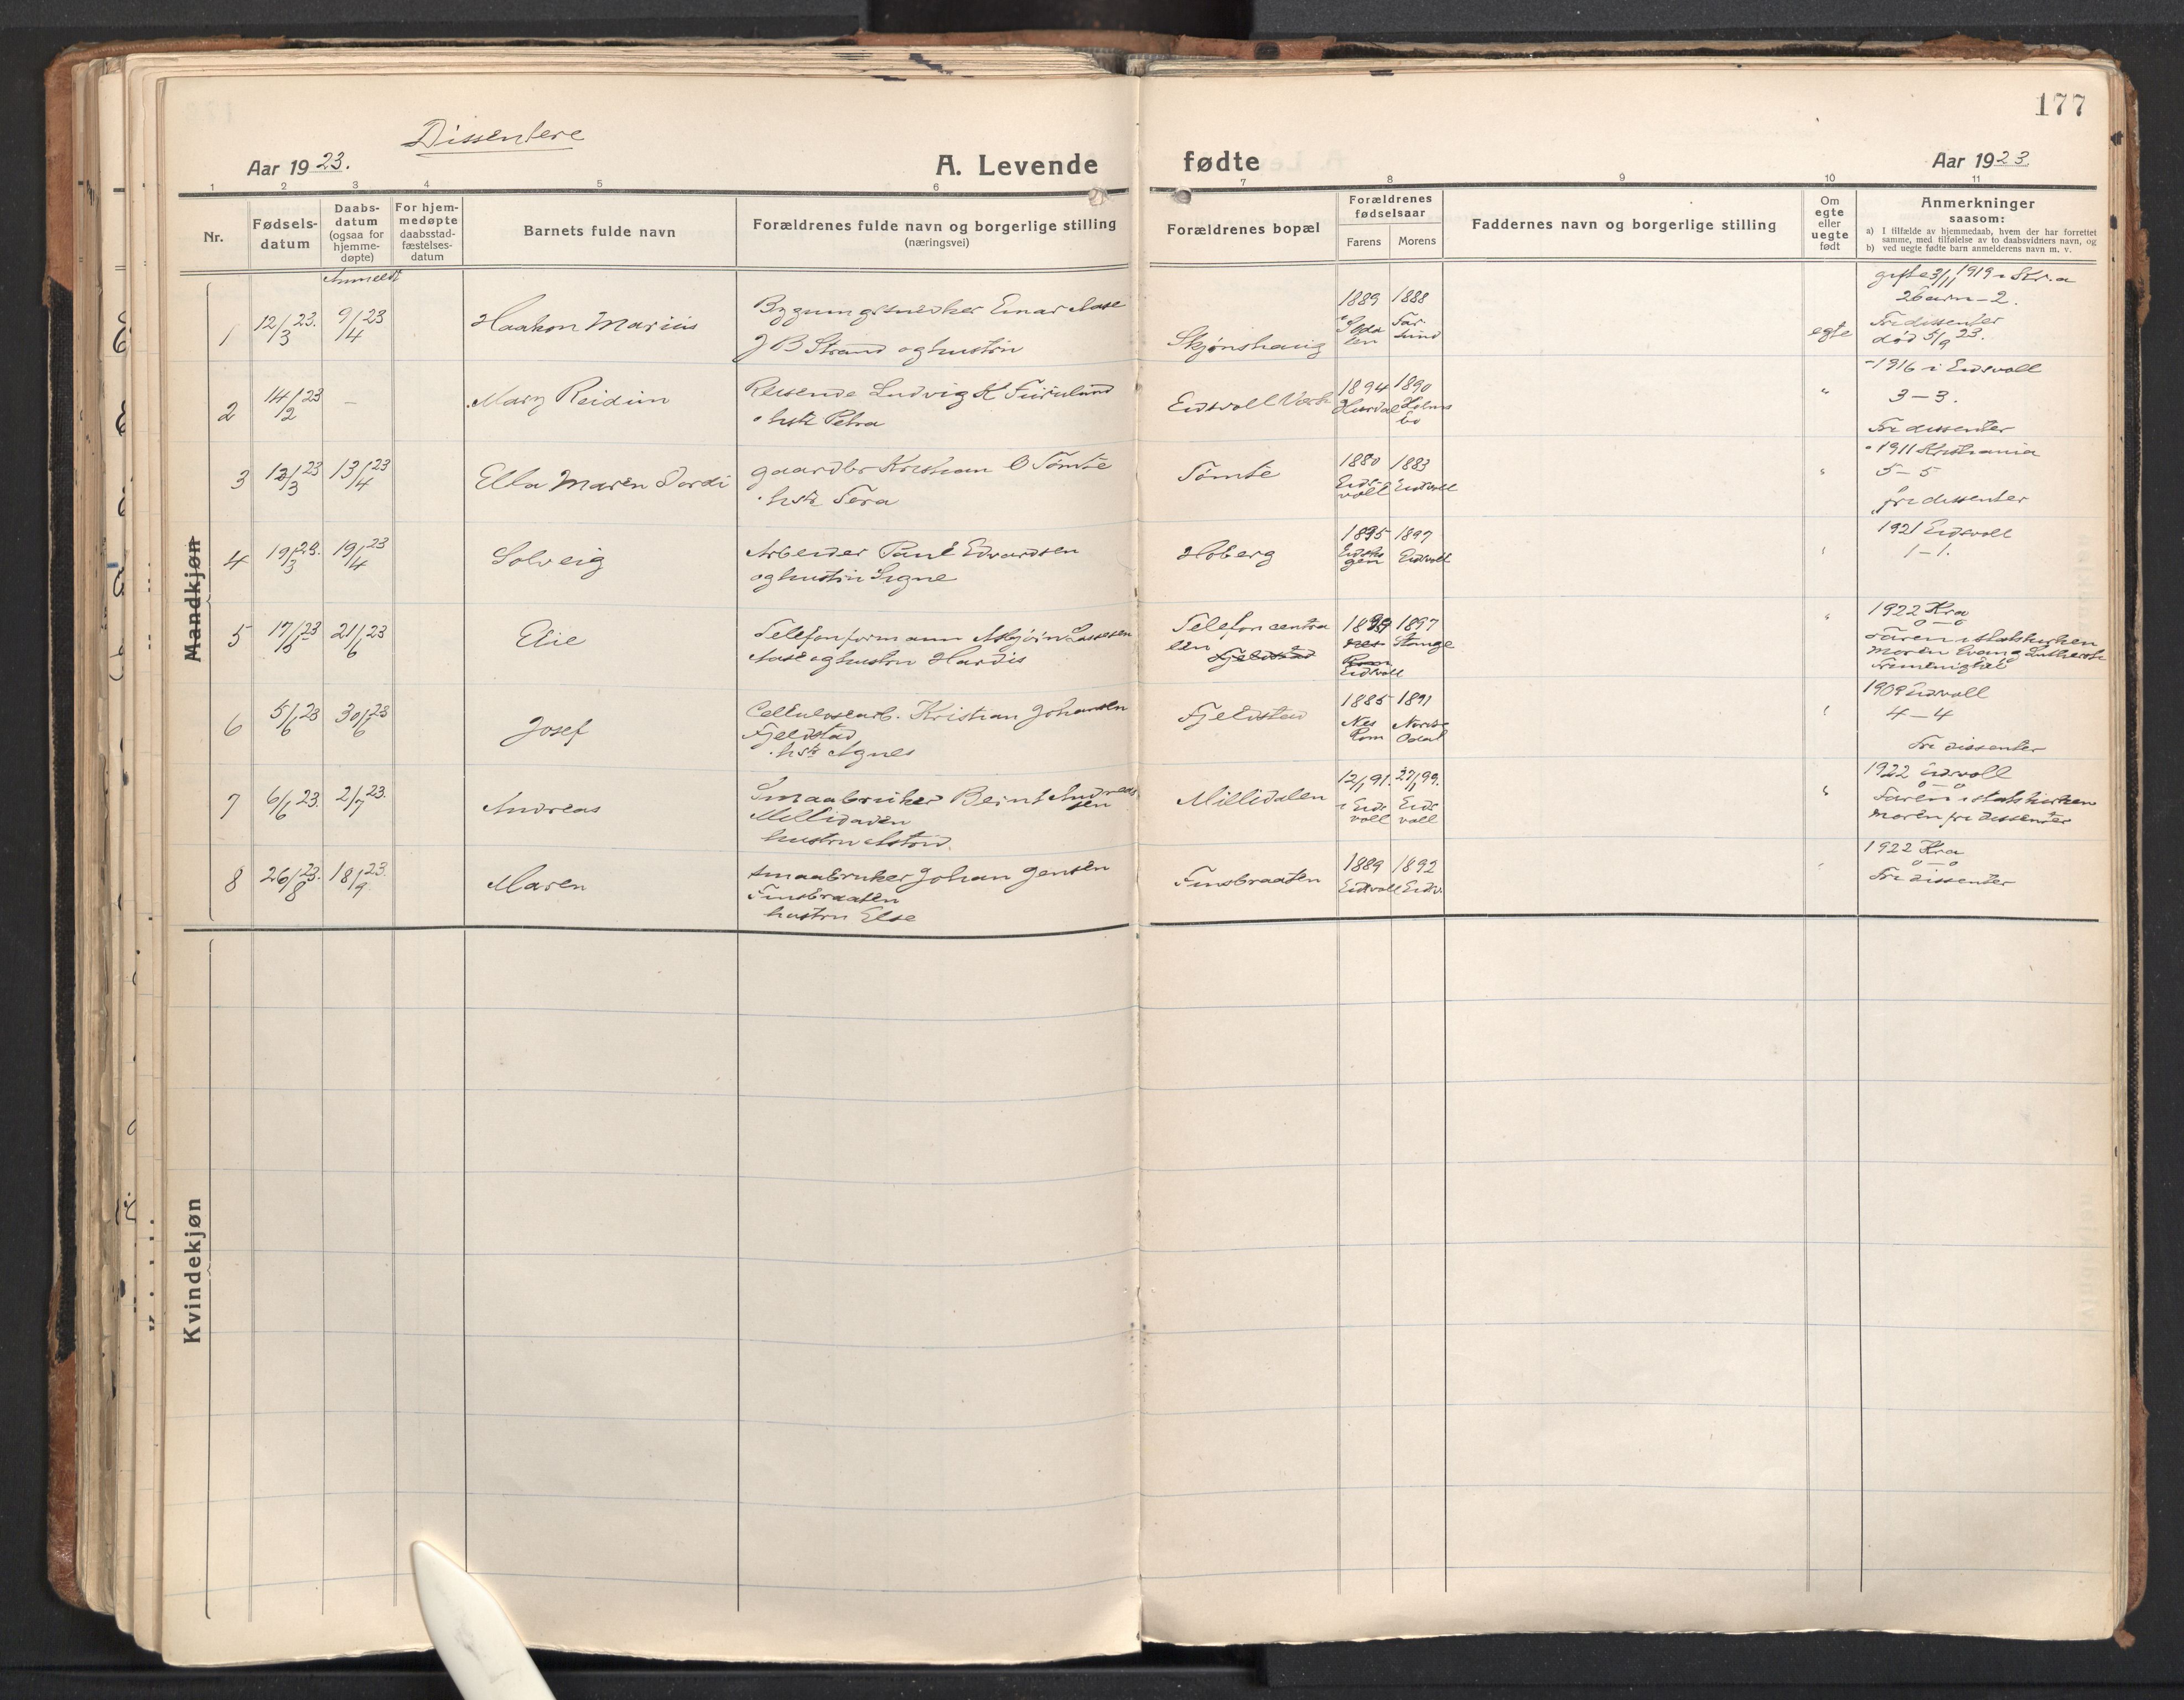 177
Dissentere
Aar 1923.
A. Levende fødte
Aar 1923.
1 2 3 4 5 6 7 8 9 10 11
Nr.
Fødsels-
datum
Daabs-
datum
(ogsaa for
hjemme-
døpte)
For hjem-
medøpte
daabsstad-
fæstelses-
datum
Barnets fulde navn
Forældrenes fulde navn og borgerlige stilling
(næringsvei)
Forældrenes bopæl
Forældrenes
fødselsaar
Farens
Morens
Faddernes navn og borgerlige stilling
Om
egte
eller
uegte
født
Anmerkninger
saasom:
a) I tilfælde av hjemmedaab, hvem der har forrettet
samme, med tilføielse av to daabsvidners navn, og
b) ved uegte fødte barn anmelderens navn m. v.
Mandkjøn
Anmeldt
1 12/3 23. 9/4 23 Haakon Marius
Einar Aase
J B Strand og hustru
Skjønshaug
1889 1888
egte
gifte 3/11 1919 i Kr.a
2 barn – 2.
Fri dissenter
død 5/9 23.
2 14/2 23 – Mary Reidun
Reisende Ludvig K Furulund
hstr Petra
Eidsvoll Værk
1894 1890
Hurdal Holms
bo
"
1916 i Eidsvoll
3 – 3.
Fri dissenter
3 12/3 23 13/4 23 Ella Maren Dordi
gaardbr Kristian O Tømte
hstr Tora
Tømte
1880 1883
Eids-
voll Eidsvoll
"
1911 Kristiania
5 – 5
fri dissenter
4 19/3 23. 19/4 23 Solveig
Arbeider Paul Edvardsen
og hustru Signe
Hoberg
1895 1897
Eidsvoll
1921 Eidsvoll
1 – 1.
5 21/6 23
Telefonformann Asbjørn
Aase og hustru Hardis
Telefon centra
len
Fjeldstad
1897
Stange
Eidsvoll
"
1922 Kra
0 – 0
Faren i statskirken
Moren Evang Luthersk
Frimenighet
6 5/6 23 30/6 23 Josef
Cellulosearb. Kristian Johansen
Fjeldstad
hstr Agnes
Fjeldstad
1885 1891
Nes
Rom
Nordre
Odal
1909 Eidsvoll
4 – 4
Fri dissenter
7 6/6 23. 2/7 23. Andreas
Smaabruker Beint Andreas
sen
hustru
Millidalen
12/1 91. 27/1 99.
i Eids
voll
Eids
voll
"
1922 Eidsvoll
0 – 0
Faren i statskirken
Moren fri dissenter
8 26/8 23. 18/9 23. Maren
Smaabruker Johan Jensen
Finsbraaten
hustru Else
Finsbraaten
1889 1892
Eidsvoll Eidsv.
1922 Kra
0 – 0
Fri dissenter
Kvindekjøn